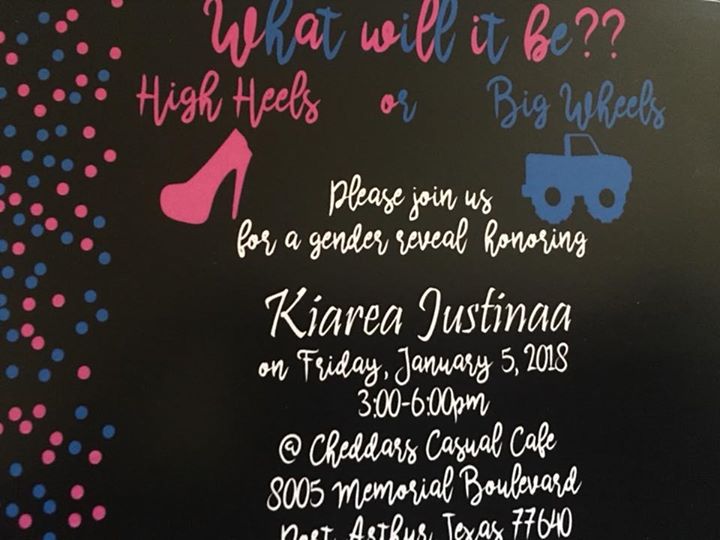 What will it Be??
High Heels or Big Wheels
please join us
for a gender reveal honoring
Kiarea Justinaa
on Friday, January 5, 2018
3:00-6:00pm
@ Cheddars Casual Cafe
8005 Memorial Boulevard
Port Arthur Texas 77640